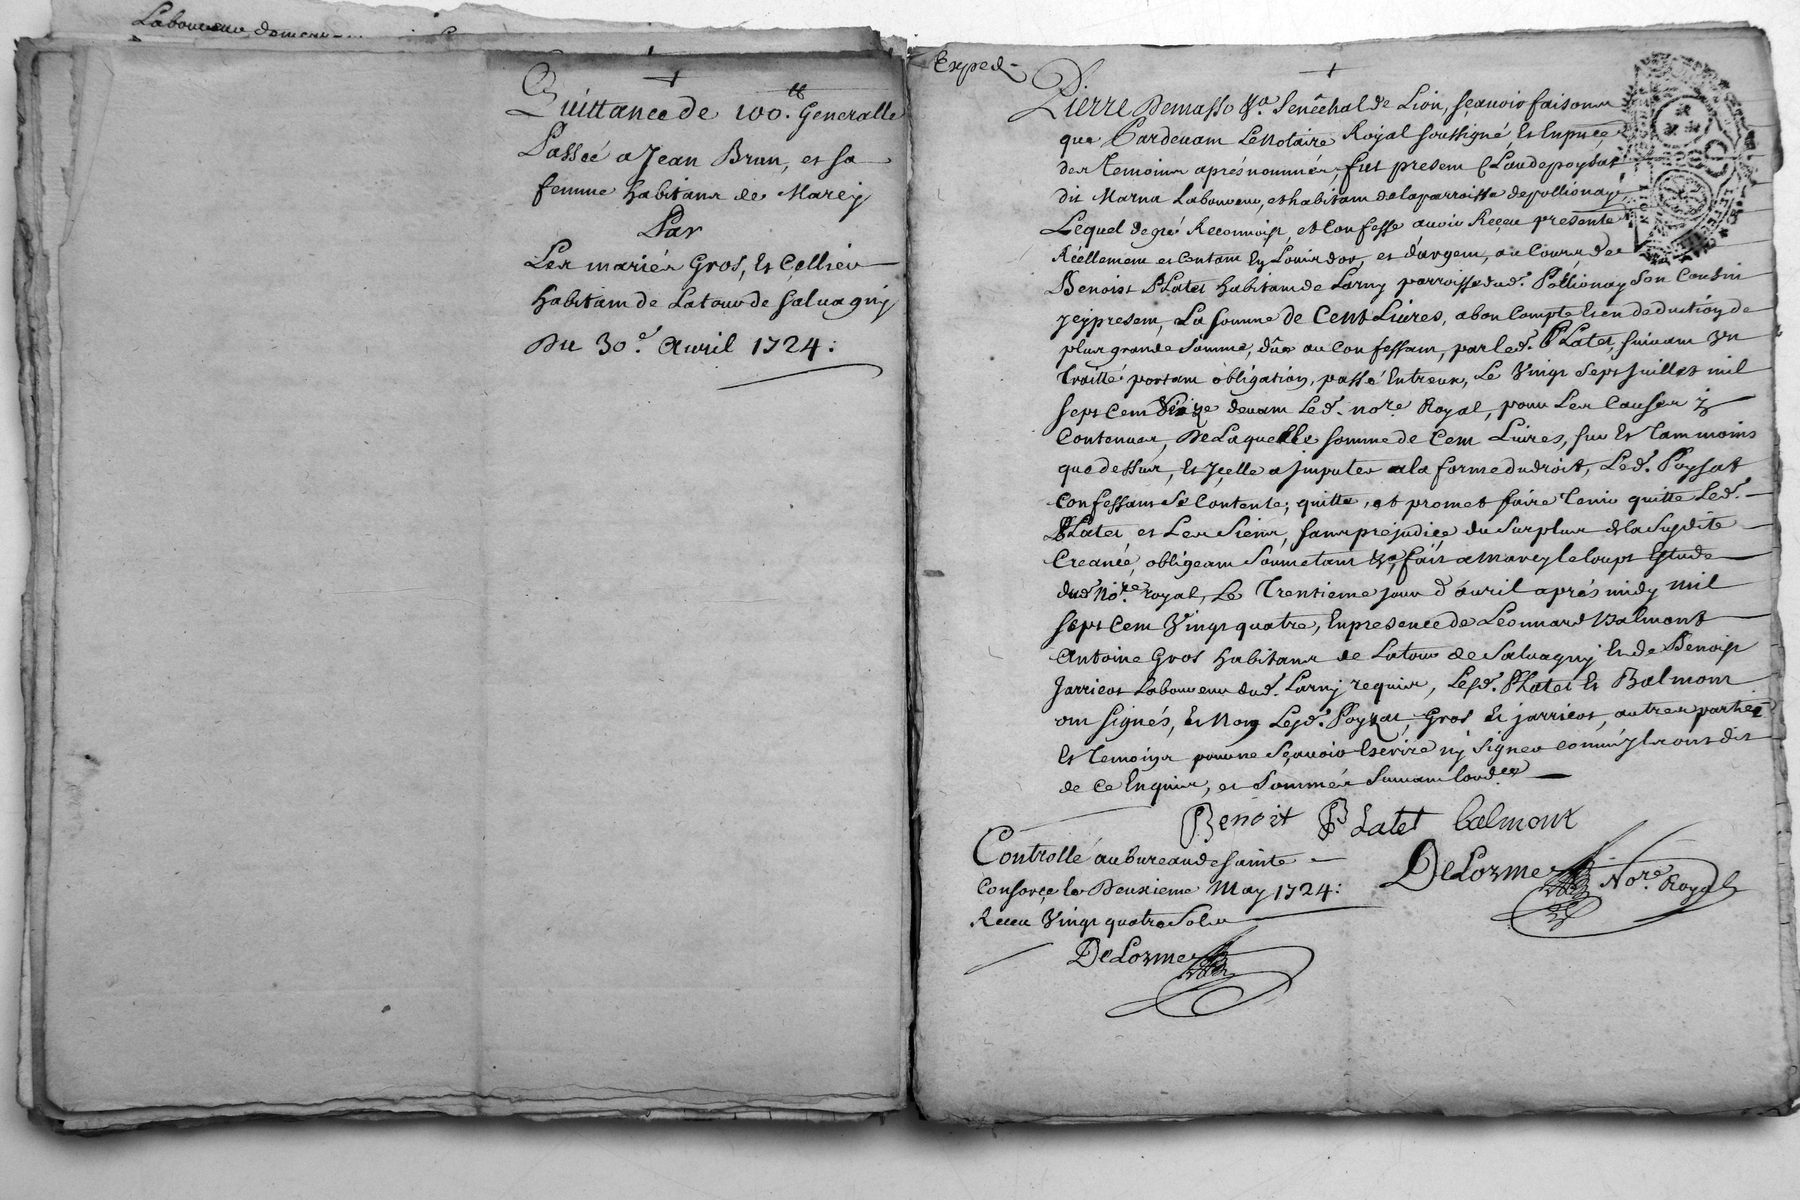 Laboureur demeur
Quittance de 100.tt Generalle
Passée a Jean Brun, et sa
femme habitans de Marcy
Par
Les mariés Gros, Et Cellier
habitans de Latour de Salvagny
Du 30.e Avril 1724:
Exped.
Pierre Demasso &a. Senêchal de Lion, sçavoir faisons
que Pardevant Le Notaire Royal soussigné, Et En pnce
des temoins aprés nommés, fut present Claude poysat
dit Marna Laboureur, et habitant de la parroisse de pollionay,
Lequel de gré Reconnoist, et Confesse avoir Reçeu presente
Réellement et Contant En Louis d'or, et d'argent, au Cours de
Benoist PLatet habitant de Larny parroisse dud. Pollionay Son Cousin
Jcy present, La somme de Cent Livres, a bon Compte Et en deduction de
plus grande Somme, düe au Confessant, par led. PLatet, suivant Un
Traitté portant obligation, passé Entreux, Le Vingt Sept Juillet mil
sept Cent devant Led. no.re Royal, pour Les Causes y
Contenües, De Laquelle somme de Cent Livres, sur Et Tant moins
que dessus, Et Jcelle a Jmputer a la forme du droit, Led. Poysat
Confessant Se Contente, quitte, et promet faire Tenir quitte Led.
PLatet et Les Siens, sans prejudice du Surplus de la Susdite
Creance, obligeant Soumetant &a, fait a Marcy le loup Estude
dud. No.re royal, Le Trentieme jour d'avril aprés midy mil
sept Cent Vingt quatre, En presence de Leonnard Balmont
Antoine Gros habitans de Latour de Salvagny Et de Benoist
Jarricot Laboureur dud. Larny requis, Lesd. PLatet Et Balmont
ont signés, Et Non Lesd. Poyzat, Gros Et jarricot, autres parties
Et Temoins pour ne Sçavoir Escrire ny Signer comme Jls ont dit
de ce Enquis, et Sommés Suivant lord.ce
Benoit PLatet balmont
DeLorme No.re Royal
Controllé au bureau de sainte
Consorçe le Deuxieme May 1724:
Receu Vingt quatre Sols
DeLorme